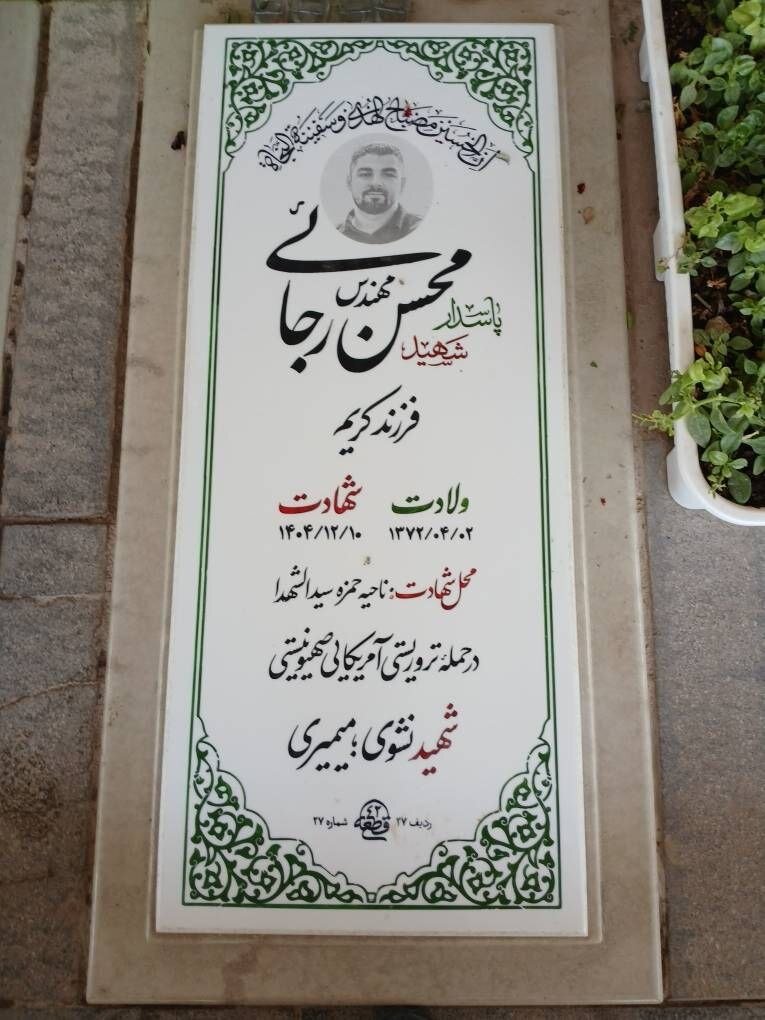 ان الحسین مصباح الهدی و سفینة النجاة
پاسدار شهید مهندس محسن رجائی
فرزند کریم
ولادت شهادت
۱۳۷۲/۰۴/۰۲ ۱۴۰۴/۱۲/۱۰
محل شهادت: ناحیه حمزه سیدالشهدا
در حملهٔ تروریستی آمریکایی صهیونیستی
شهید نشوی؛ میمیری
ردیف ۲۷ قطعه ۴۲ شماره ۲۷